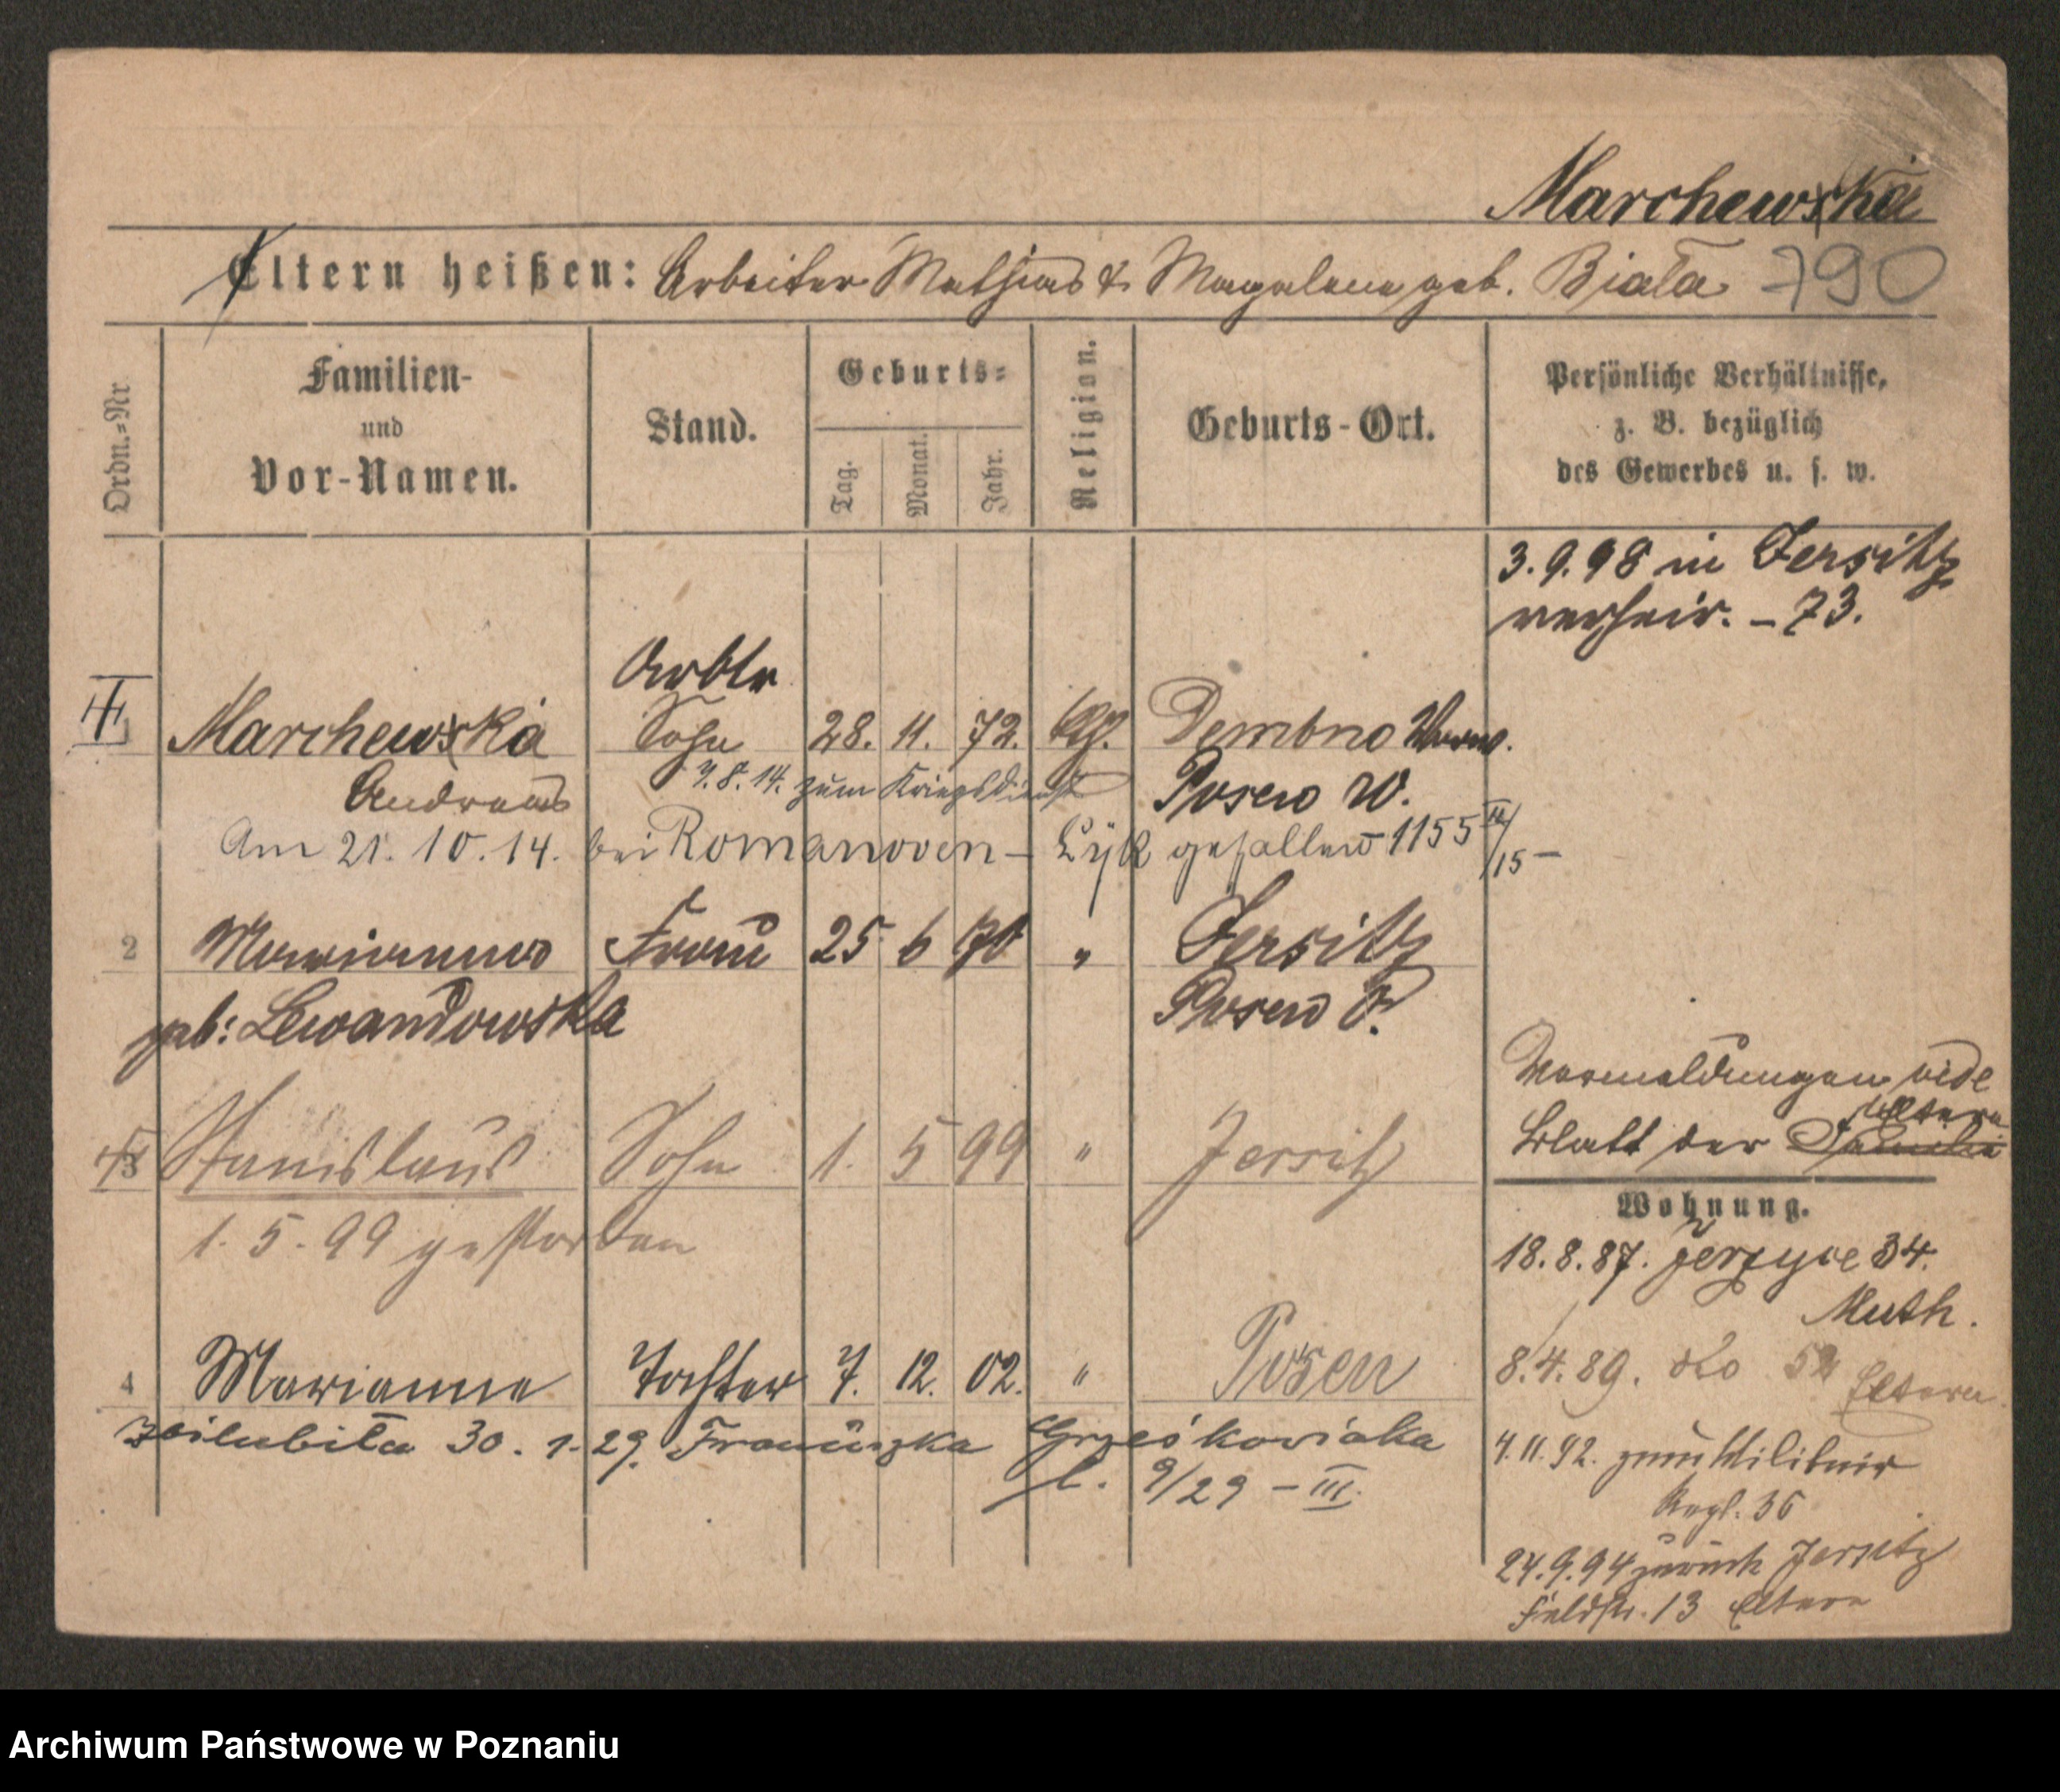 Marchewka
Eltern heißen: Arbeiter Mathias & Magdalena geb. Biała 790
Ordn.=Nr.
Familien-
und
Vor-Namen.
Stand.
Geburts=
Tag.
Monat.
Jahr.
Religion.
Geburts-Ort.
Persönliche Verhältnisse,
z. B. bezüglich
des Gewerbes u. s. w.
3.9.98 in Jersitz
verheir. – 73.
Arbtr
1 Marchewka Sohn 28. 11. 72. kath. Dembno
Andreas 7.8.14. zum Kriegsdienst Posen W.
Am 21. 10. 14. bei Romanowen – Lyk gefallen 1155 IV/15 –
2 Marianna Frau 25 6 70 " Jersitz
geb: Lewandowska Posen O.
3 Stanislaus Sohn 1. 5 99 " Jersitz
1. 5. 99 gestorben
Vormeldungen vide
Blatt der Familie Eltern
Wohnung.
18.8.87. Jerzyce 34.
Muth.
8.4.89. dto 52 Eltern
4 Marianne Tochter 7. 12. 02. " Posen
30. 1. 29. Franciszka Grześkowiaka
l. 9/29 – III.
4.11.92. zum Militair
Regt. 36
24.9.94 zurück Jersitz
Feldstr. 13 Eltern
Archiwum Państwowe w Poznaniu